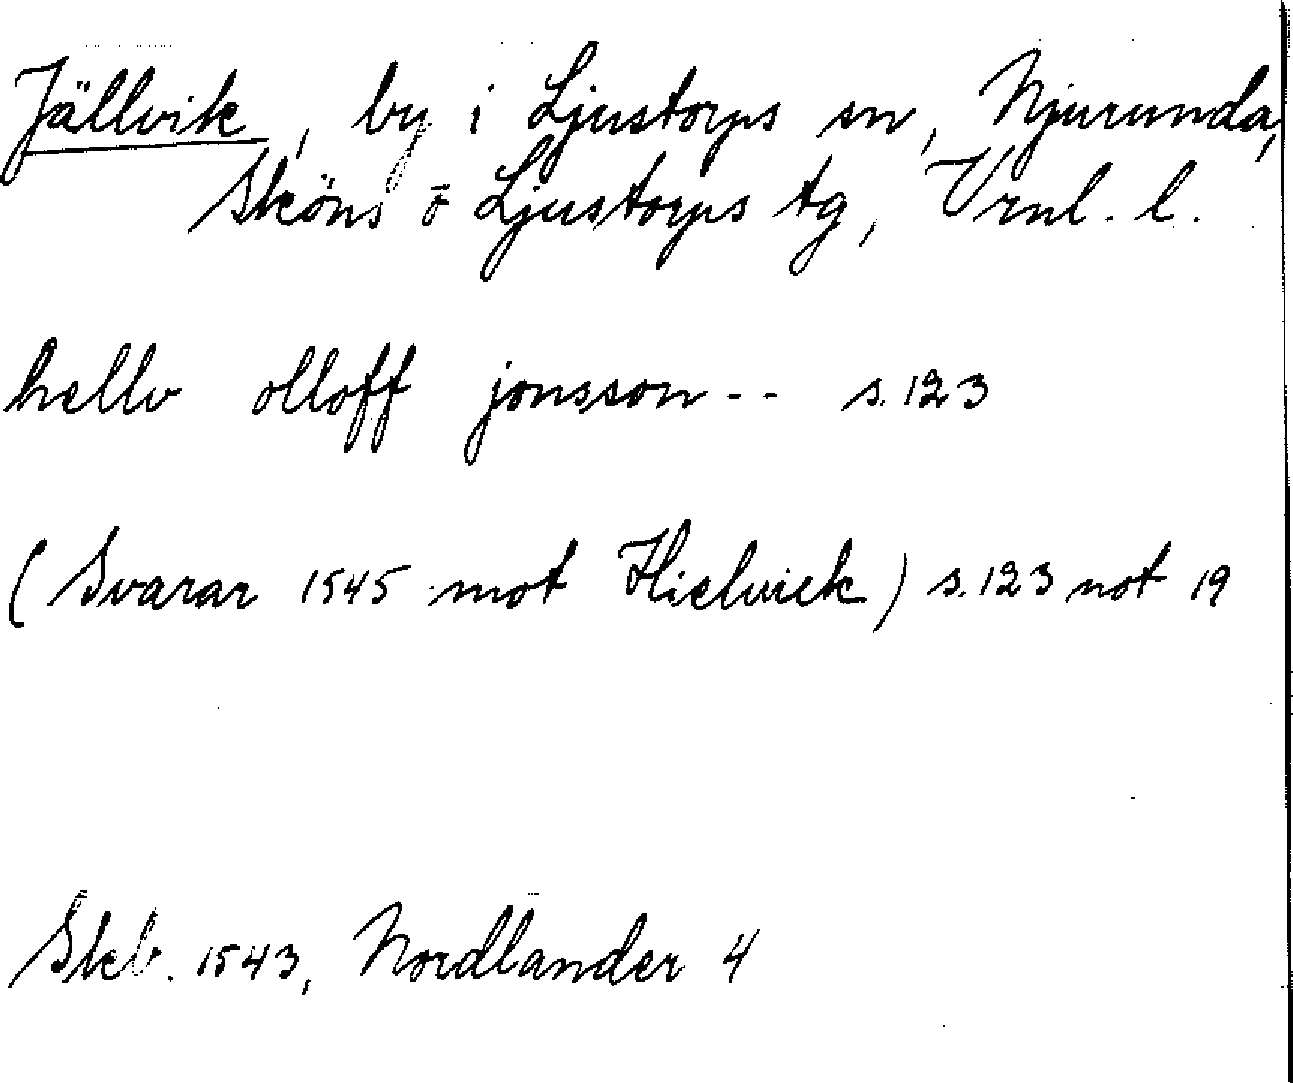 Jällvik, by i Ljustorps sn, Njurunda,
Sköns o Ljustorps tg, Vrnl. l.
hellv olloff jonsson - - s. 123
(Svarar 1545 mot Hielwiek) s. 123 not 19
Skb. 1543, Nordlander 4